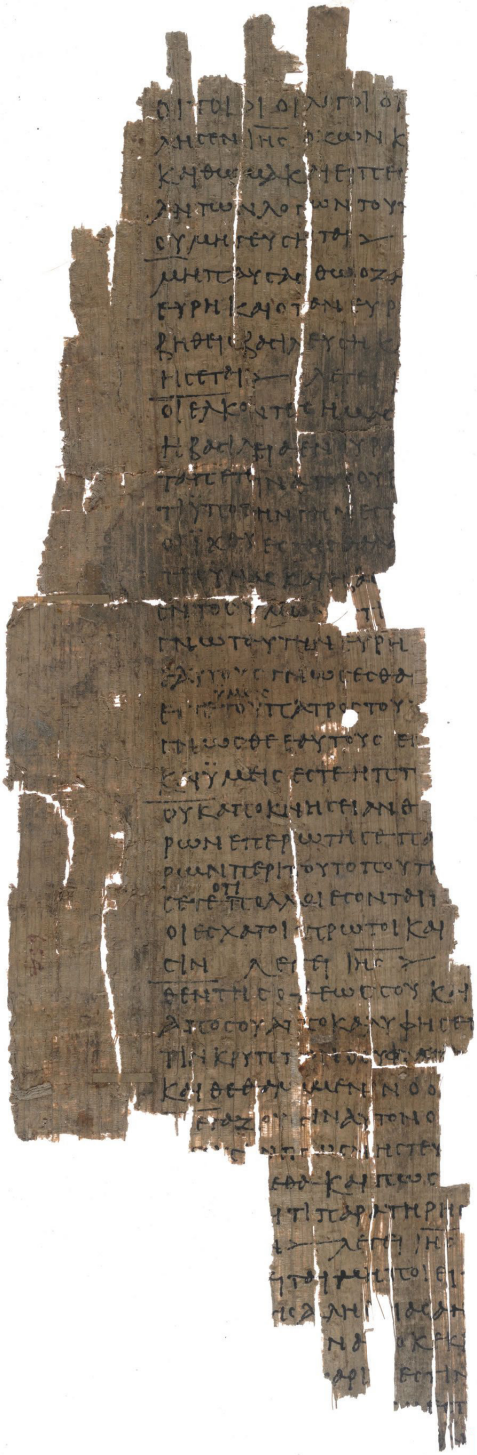 ΟΙ ΤΟΙΟΙ ΟΙ ΛΟΓΟΙ ΟΙ
ΛΗϹΕΝ ΙΗϹ Ο ΖΩΝ Κ
ΚΑΙ ΘΩΜΑ ΚΑΙ ΕΙΠΕΝ
ΑΝ ΤΩΝ ΛΟΓΩΝ ΤΟΥΤ
ΟΥ ΜΗ ΓΕΥϹΗΤΑΙ >—
ΜΗ ΠΑΥϹΑϹΘΩ Ο ΖΗ
ΕΥΡΗ ΚΑΙ ΟΤΑΝ ΕΥΡ
ΒΗΘΕΙϹ ΒΑϹΙΛΕΥϹΗ Κ
ΗϹΕΤΑΙ >— ΛΕΓΕΙ
ΟΙ ΕΛΚΟΝΤΕϹ ΗΜΑϹ
Η ΒΑϹΙΛΕΙΑ ΕΝ ΟΥΡΑ
ΤΑ ΠΕΤΕΙΝΑ ΤΟΥ ΟΥΡ
ΤΙ ΫΠΟ ΤΗΝ ΓΗΝ ΕϹΤ
ΟΙ ΪΧΘΥΕϹ ΤΗϹ ΘΑΛΑ
ΤΕϹ ΥΜΑϹ ΚΑΙ Η ΒΑϹ
ΕΝΤΟϹ ΥΜΩΝ ΤΙ
ΓΝΩ ΤΑΥΤΗΝ ΕΥΡΗ
ΕΑΥΤΟΥϹ ΓΝΩϹΕϹΘΑΙ
ΥΜΕΙϹ
ΕϹΤΕ ΤΟΥ ΠΑΤΡΟϹ ΤΟΥ
ΓΝΩϹΘΕ ΕΑΥΤΟΥϹ ΕΝ
ΚΑΙ ΫΜΕΙϹ ΕϹΤΕ Η ΠΤ
ΟΥΚ ΑΠΟΚΝΗϹΕΙ ΑΝΘ
ΡΩΝ ΕΠΕΡΩΤΗϹΕ ΠΑ
ΡΩΝ ΠΕΡΙ ΤΟΥ ΤΟΠΟΥ ΤΗ
ΟΤΙ
ϹΕΤΕ ΠΟΛΛΟΙ ΕϹΟΝΤΑΙ Π
ΟΙ ΕϹΧΑΤΟΙ ΠΡΩΤΟΙ ΚΑΙ
ϹΙΝ ΛΕΓΕΙ ΙΗϹ >—
ΘΕΝ ΤΗϹ ΟΨΕΩϹ ϹΟΥ ΚΑΙ
ΑΠΟ ϹΟΥ ΑΠΟΚΑΛΥΦΗϹΕΤ
ΤΙΝ ΚΡΥΠΤΟΝ Ο ΟΥ ΦΑΝΕ
ΚΑΙ ΘΕΘΑΜΜΕΝΟΝ Ο Ο
ΕΤΑΖΟΥϹΙΝ ΑΥΤΟΝ Ο
ΠΩϹ ΝΗϹΤΕΥ
ΕΘΑ ΚΑΙ ΠΩϹ
ΤΙ ΠΑΡΑΤΗΡΗϹ
>— ΛΕΓΕΙ ΙΗϹ
ΤΑΙ ΜΗ ΠΟΙΕΙ
ΗϹ ΑΛΗΘ ΙΑϹ ΑΝ
ΝΑ ΟΚΕΚ
ΑΡΙ ΕϹΤΙΝ